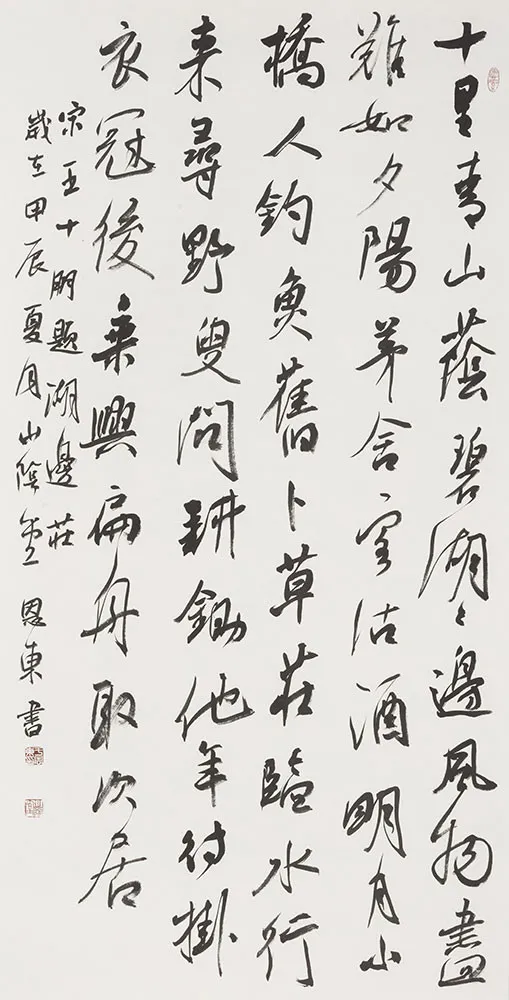 十里青山蔭碧湖〻邊風物畫
難如夕陽茅舍客沽酒明月小
橋人釣魚舊卜草莊臨水行
来尋野叟問耕鋤他年待掛
衣冠後乘興扁舟取次居
宋王十朋題湖邊莊
歲在甲辰夏月山陰恩東書